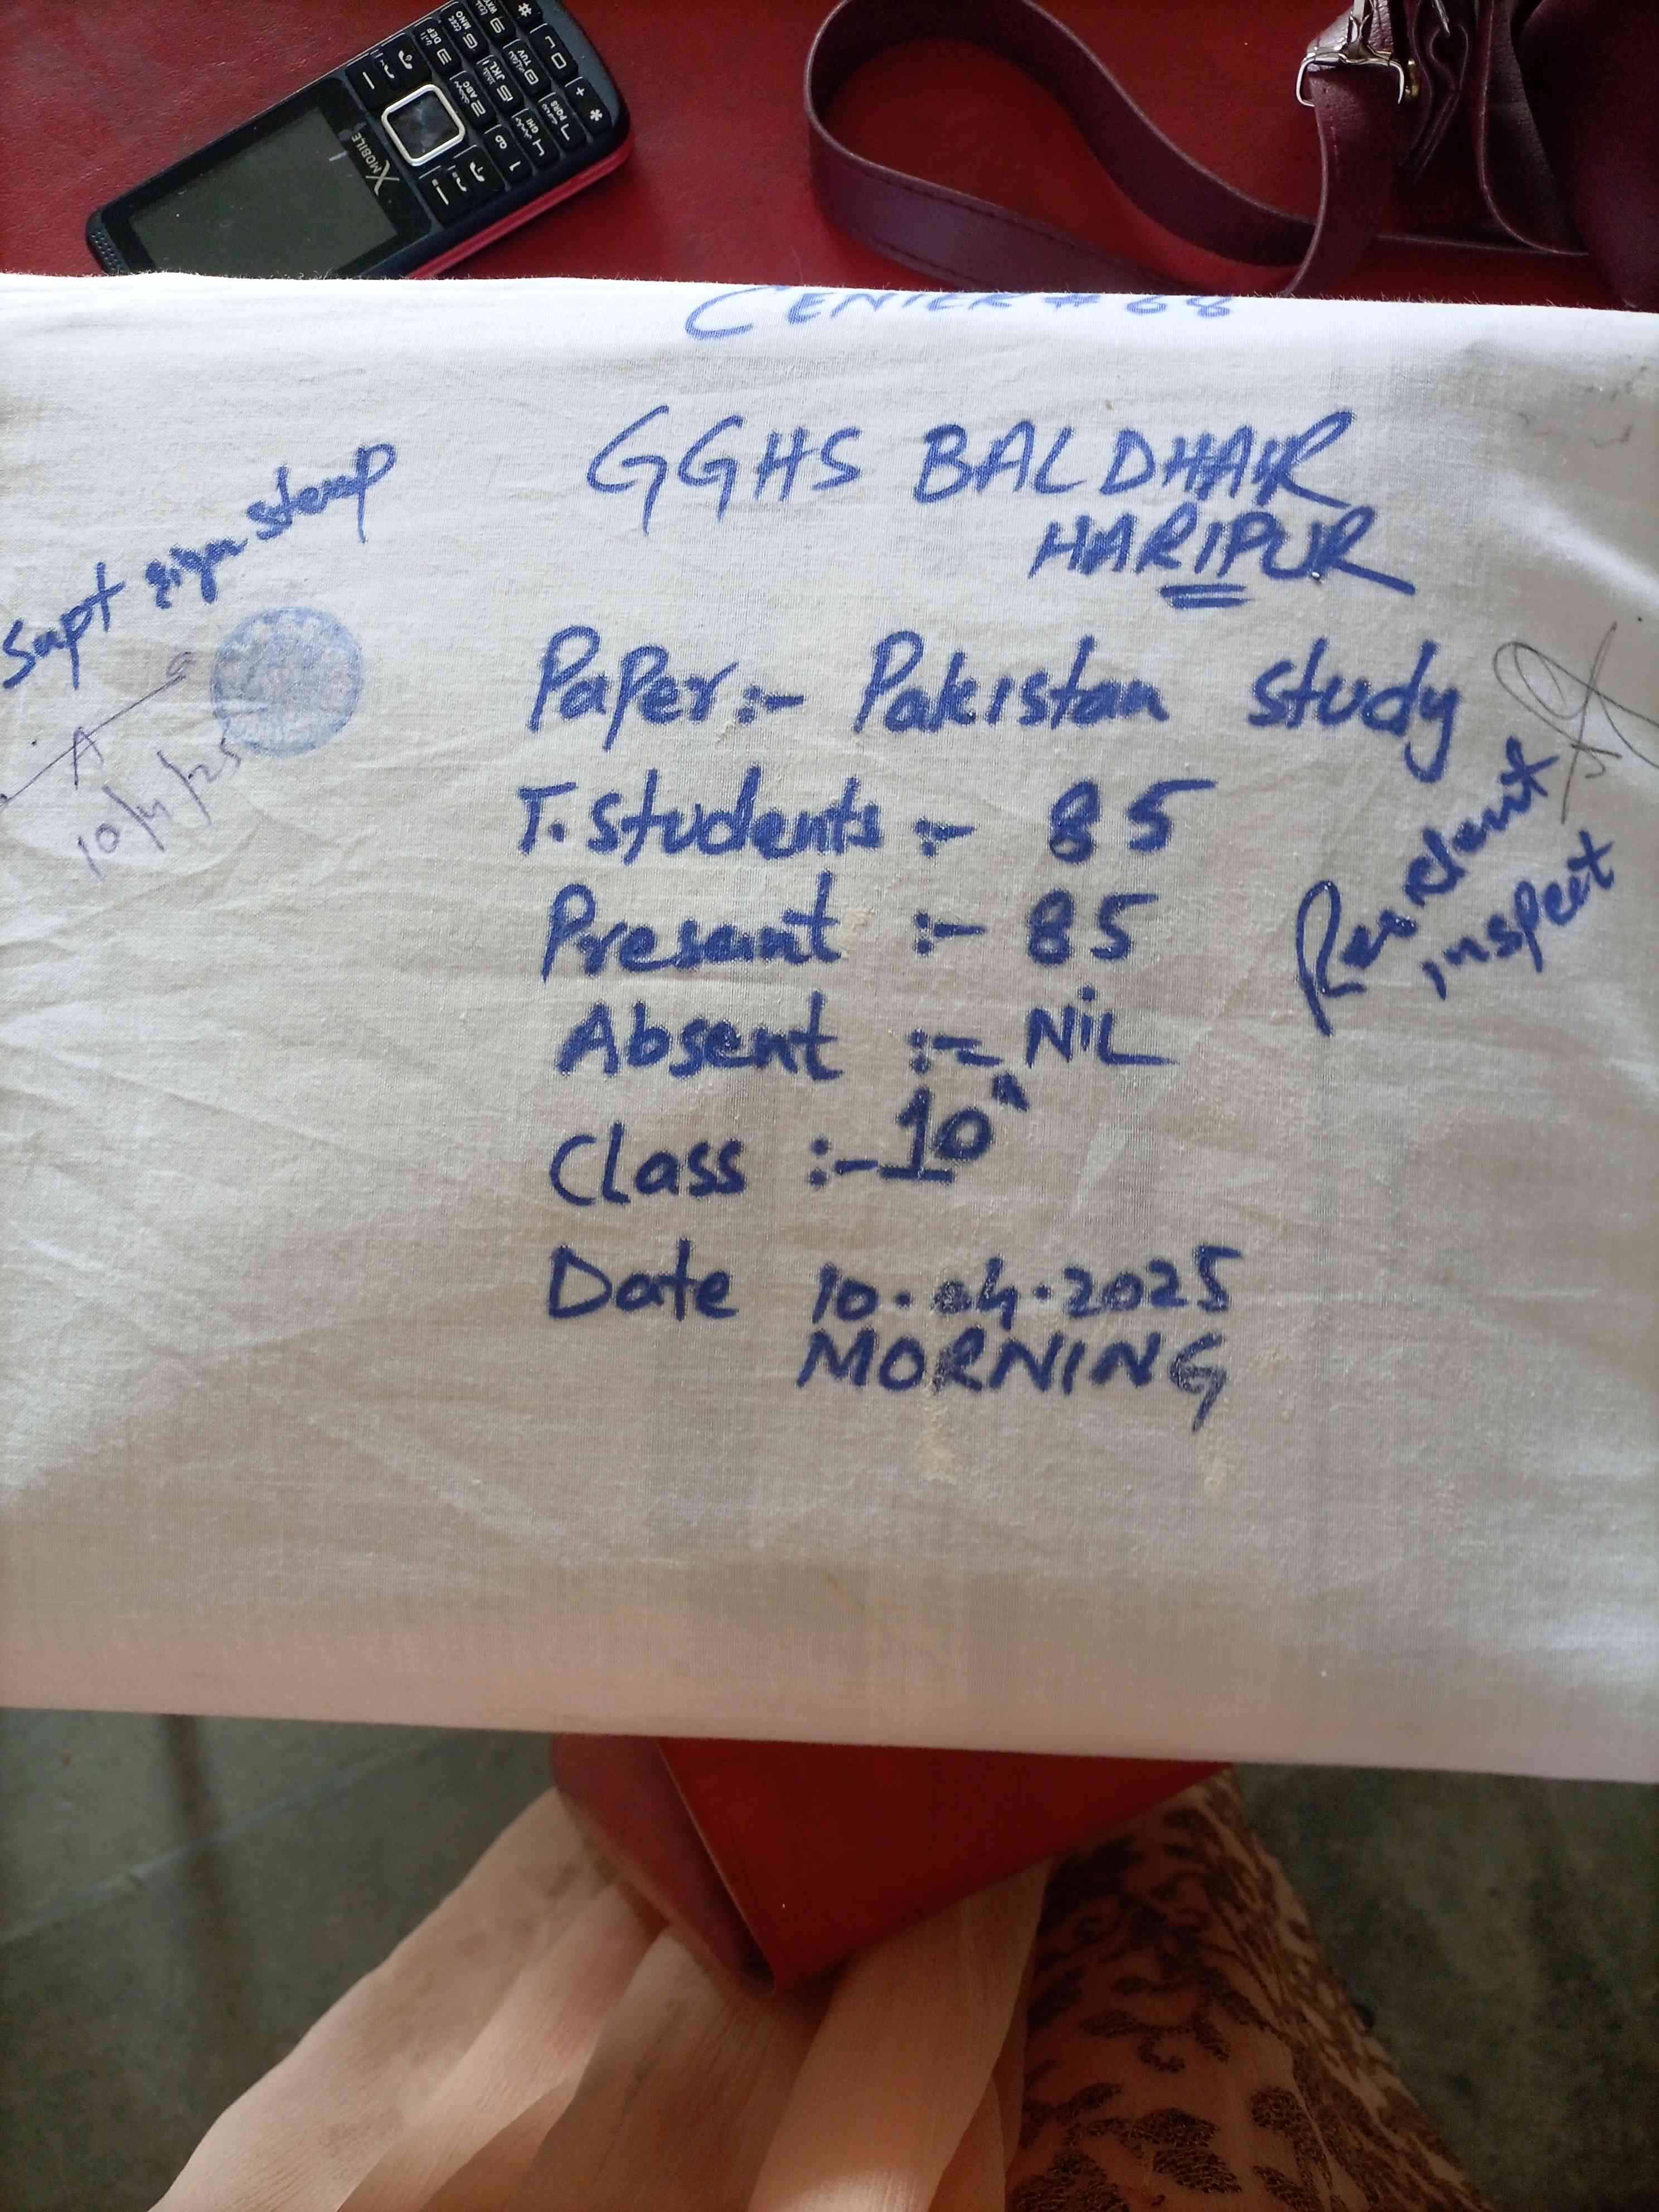 X MOBILE
CENTER # 68
GGHS BALDHAIR
HARIPUR
Supt sign stemp
10/4/25
Paper:- Pakistan study
T. students :- 85
Present :- 85
Absent :- NiL
Class :- 10th
Date 10.04.2025
MORNING
Resident
inspect